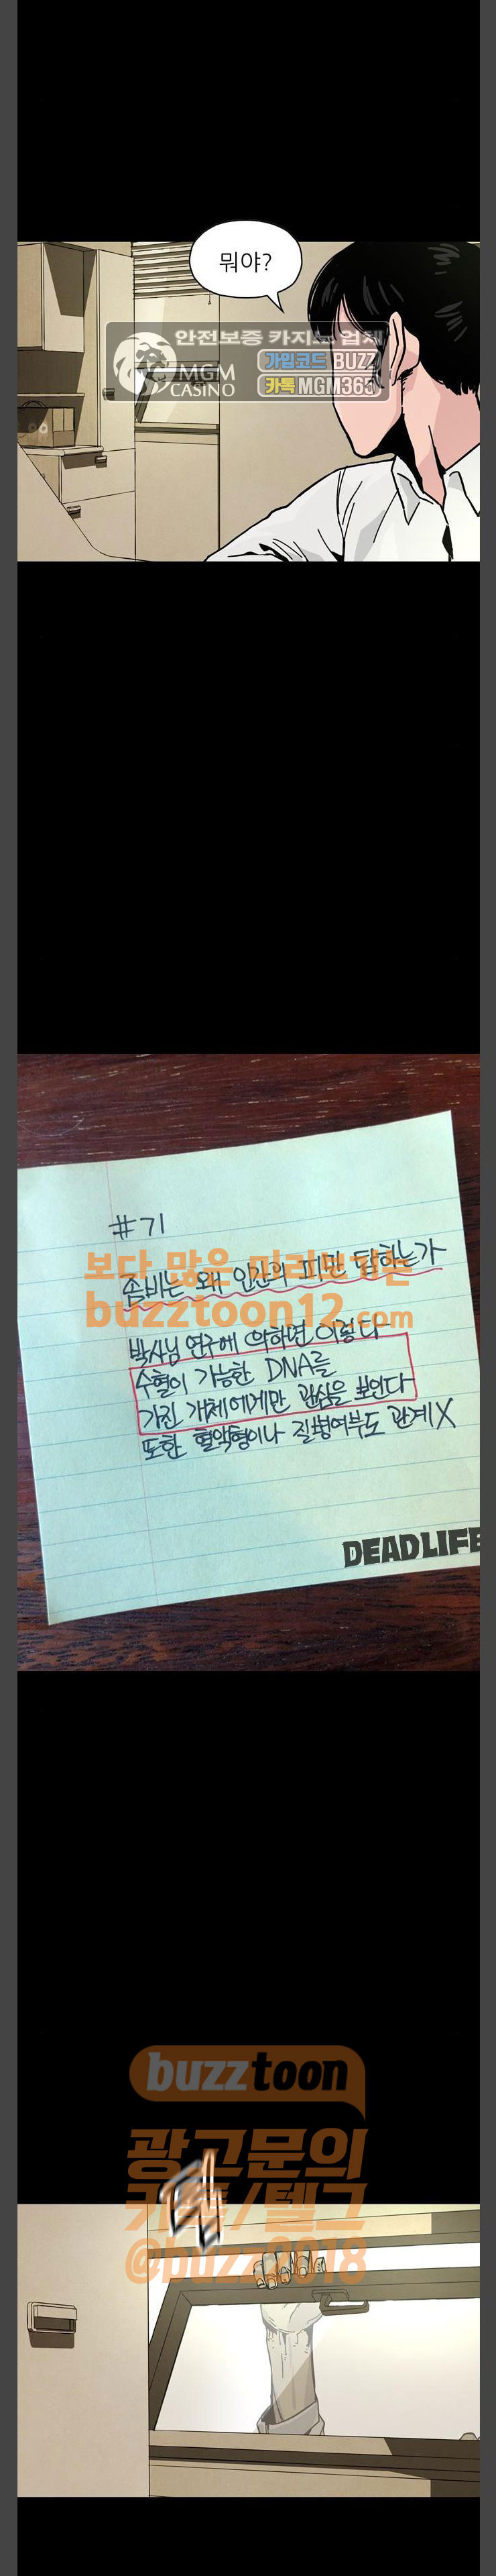 뭐야?
안전보증 카지노 업체
MGM CASINO
가입코드 BUZZ
카톡 MGM365
#71
좀비는 왜 인간의 피만 탐하는가
보다 많은 미리보기는
buzztoon12.com
박사님 연구에 의하면 이렇다
수혈이 가능한 DNA를
가진 개체에게만 관심을 보인다
또한 혈액형이나 질병여부도 관계X
DEADLIFE
buzztoon
광고문의
카톡/텔그
@buzz2018